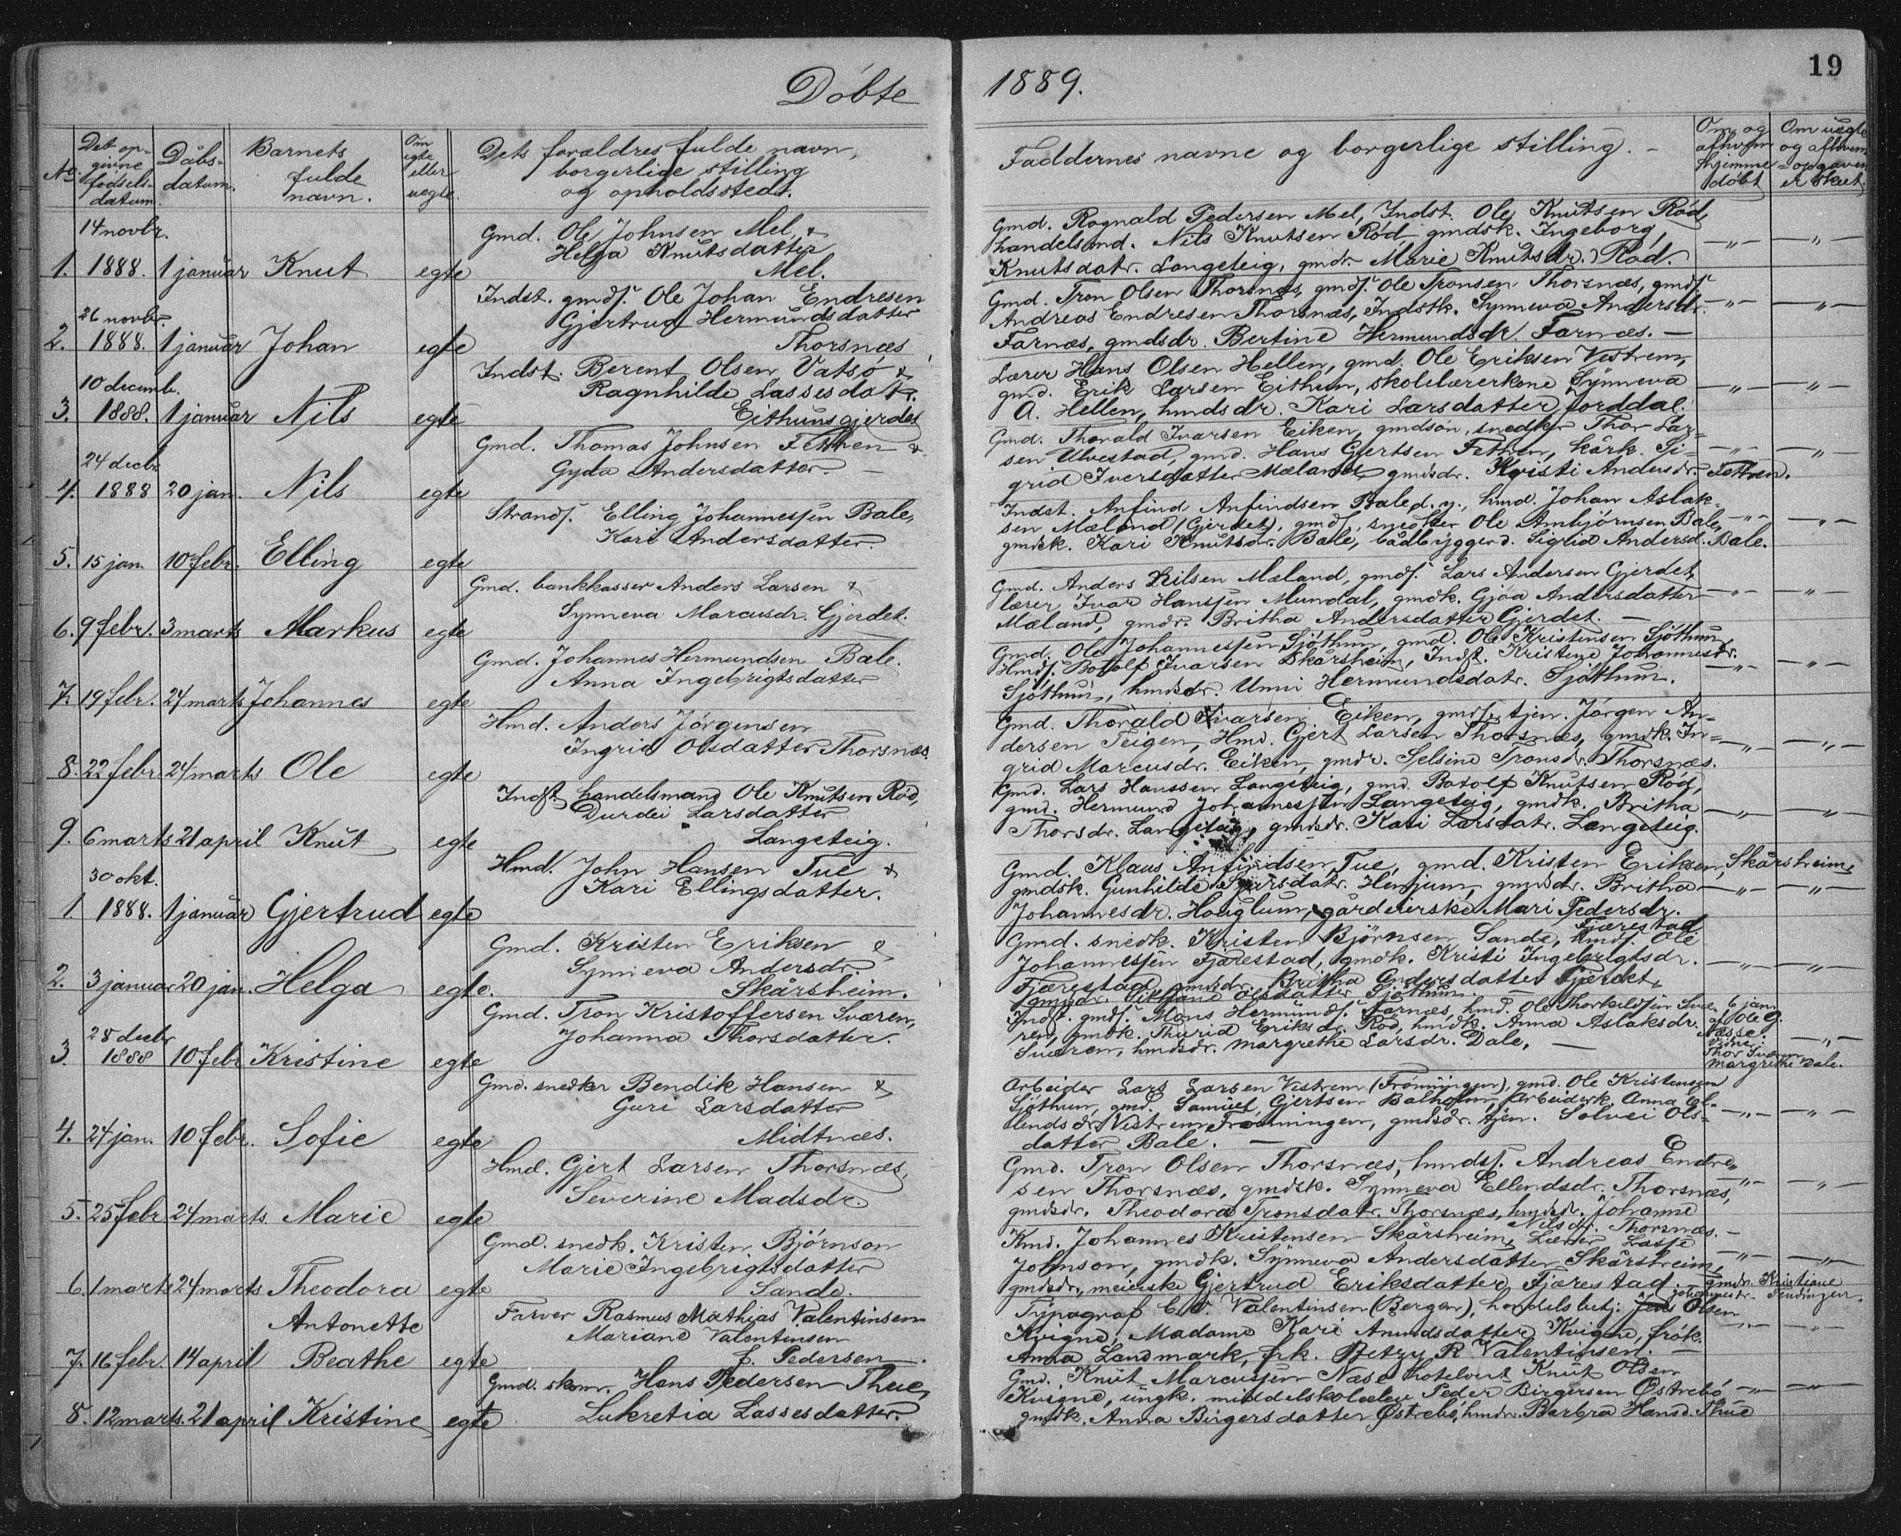 Døbte 1889.
19
No
Det op-
givne
fødsels-
datum.
Dåbs-
datum.
Barnets
fulde
navn.
Om
egte
eller
uegte.
Dets forældres fulde navn,
borgerlige stilling
og opholdssted.
Faddernes navne og borgerlige stilling. -
Om og
af hvem
hjemme
døbt
Om uegte
og af hvem
opgaven
er skut.
14 novbr.
1. 1888. 1 januar Knut egte
Gmd. Ole Johnsen Mel &
Helga Knutsdatter
Mel.
Gmd. Rognald Pedersen Mel, Indst. Ole Knutsen Rød,
handelsmd. Nils Knutsen Rød gmdsk. Ingeborg
Knutsdatr. Langeteig, gmdr. Marie Knutsdr. Rød.
26 novbr.
2. 1888. 1 januar Johan egte
Indst. gmds. Ole Johan Endresen
Gjertrud Hermundsdatter
Thorsnæs
Gmd. Tron Olsen Thorsnæs, gmds. Ole Tronsen Thorsnæs, gmds.
Andreas Endresen Thorsnæs, Indstk. Synneva Andersdr.
Farnæs, gmdsdr. Bertine Hermundsdr. Farnæs. -
10 decemb.
3. 1888. 1 januar Nils egte
Indst. Berent Olsen Vatsø &
Ragnhilde Lassesdatr.
Eithunsgjerdet
Lærer Hans Olsen Hellen, gmd. Ole Eriksen Vestrem,
gmd. Erik Larsen Eithun, skolelærerkone Synneva
A. Hellen, hmdsdr. Kari Larsdatter Jorddal.
24 decbr
4. 1888 20 jan. Nils egte
Gmd. Thomas Johnsen Fettren &
Gyda Andersdatter. -
Gmd. Thorald Ivarsen Eiken, gmdsøn, snedker Thor Lar-
sen Ulvestad, gmd. Hans Gjertsen Fettren, kårk. Si-
grid Iversdatter Mæland, gmdsdr. Kristi Andersdr. Fettren.
5. 15 jan. 10 febr. Elling egte
Strands. Elling Johannessen Bale,
Kari Andersdatter.
Indst. Anfind Anfindsen Bale d. y., hmd. Johan Aslak-
sen Mæland (Gjerdet), gmds. snedker Ole Ambjørnsen Bale,
gmdsk. Kari Knutsdr. Bale, bådbyggerd. Sigrid Andersd. Bale.
6. 9 febr. 3 marts Markus egte
Gmd. bankkasser Anders Larsen &
Synneva Marcusdr. Gjerdet.
Gmd. Anders Nilsen Mæland, gmds. Lars Andersen Gjerdet,
lærer Ivar Hanssen Mundal, gmdk. Gjøa Andersdatter
Mæland, gmdr. Britha Andersdatter Gjerdet. -
7. 19 febr. 24 marts Johannes egte
Gmd. Johannes Hermundsen Bale.
Anna Ingebrigtsdatter
Gmd. Ole Johannessen Sjøthun, gmd. Ole Kristensen Sjøthun,
Hmds. Botolf Ivarsen Skårsheim, Indst. Kristine Johannesdr.
Sjøthun, hmdsdr. Unni Hermundsdatr. Sjøthun.
8. 22 febr. 24 marts Ole egte
Hmd. Anders Jørgensen
Ingrid Olsdatter Thorsnæs.
Gmd. Thorald Ivarsen Eiken, gmds. tjen. Jørgen An-
dersen Teigen, Hmd. Gjert Larsen Thorsnæs, gmdk. In-
grid Marcusdr. Eiken, gmdr. Selsine Tronsdr. Thorsnæs.
9. 6 marts 21 april Knut egte
Indst. handelsmand Ole Knutsen Rød,
Durdei Larsdatter
Langeteig.
Gmd. Lars Hanssen Langeteig, gmd. Botolf Knutsen Rød,
gmd. Hermund Johannessen Langeteig, gmdk. Britha
Thorsdr. Langeteig, gmdsdr. Kari Larsdatr. Langeteig.
30 okt.
1 1888. 1 januar Gjertrud egte
Hmd. John Hansen Tue &
Kari Ellingsdatter.
Gmd. Klaus Anfindsen Tue, gmd. Kristen Eriksen Skårsheim,
gmdsk. Gunhilde Ivarsdatr. Henjum, gmdsdr. Britha
Johannesdr. Houglum, gårdeierske Mari Pedersdr.
Fjærestad
2. 3 januar 20 jan. Helga egte.
Gmd. Kristen Eriksen &
Synneva Andersdr.
Skårsheim.
Gmd. snedk. Kristen Bjørnsen Sande, hmds. Ole
Johannessen Fjærestad, gmdk. Kristi Ingebrigtsdr.
Fjærestad, gmdsdr. Britha Andersdatter Gjerdet,
gmdsdr. Olsdatter Sjøthun.
28 decbr
3. 1888 10 febr Kristine egte
Gmd. Tron Kristoffersen Sværen,
Johanna Thorsdatter.
Indst. gmds. Mons Hermunds. Farnæs, hmd. Ole Thorkildsen Svæ-
ren, gmdk. Thurid Eriksdr. Rød, hmdk. Anna Aslaksdr.
Sværen, hmdsdr. Margrethe Larsdr. Dale, -
6 jan.
af Ole O.
Næsse.
Vidne:
Thor Sværen
Margrethe Dale.
4. 24 jan. 10 febr. Sofie egte
Gmd. snedker Bendik Hansen &
Guri Larsdatter
Midtnæs.
Arbeider Lars Larsen Vestrem (Frønningen), gmd. Ole Kristensen
Sjøthun, gmd. Samuel Gjertsen Balholm, Arbeiderk. Anna El-
lendsdr. Vestrem Frønningen, gmdsdr. tjen. Solvei Ols-
datter Bale. -
5. 25 febr 24 marts. Marie egte
Hmd. Gjert Larsen Thorsnæs,
Severine Madsdr.
Gmd. Tron Olsen Thorsnæs, hmds. Andreas Endre-
sen Thorsnæs, gmdsk. Synneva Ellendsdr. Thorsnæs,
gmdsdr. Theodora Tronsdatr. Thorsnæs, hmdsdr. Johanne
Nilsdr. Thorsnæs. -
6. 1 marts 24 marts Theodora egte
Gmd. snedk. Kristen Bjørnson
Marie Ingebrigtsdatter
Sande.
Kmd. Johannes Kristensen Skårsheim, Lærer Lasse
Johnson, gmdk. Synneva Andersdatter Skårsheim,
gmdsdr., meierske Gjertrud Eriksdatter Fjærestad. - gmdr. Kristiane
Johannesdr. Tendingen.
Antonette
7. 16 febr. 14 april Beathe egte
Farver Rasmus Mathias Valentinsen
Mariane Valentinsen
f. Pedersen
Typograf C. V. Valentinsen (Bergen), handelsbetj. Jens Olsen
Kvigne, Madame Kari Amundsdatter Kvigne, frøk.
Anna Landmark, frk. Betzy R. Valentinsen. -
8. 12 marts. 21 april Kristine egte
Gmd. skom. Hans Pedersen Thue,
Lukretia Lassesdatter.
Gmd. Knut Marcussen Næse hotelvert Knut Olsen
Kvigne, ungk. middelskoleelev Peder Birgersen Østrebø
gmdk. Anna Birgersdatter Østrebø, hmdr. Barbra Hansd. Thue